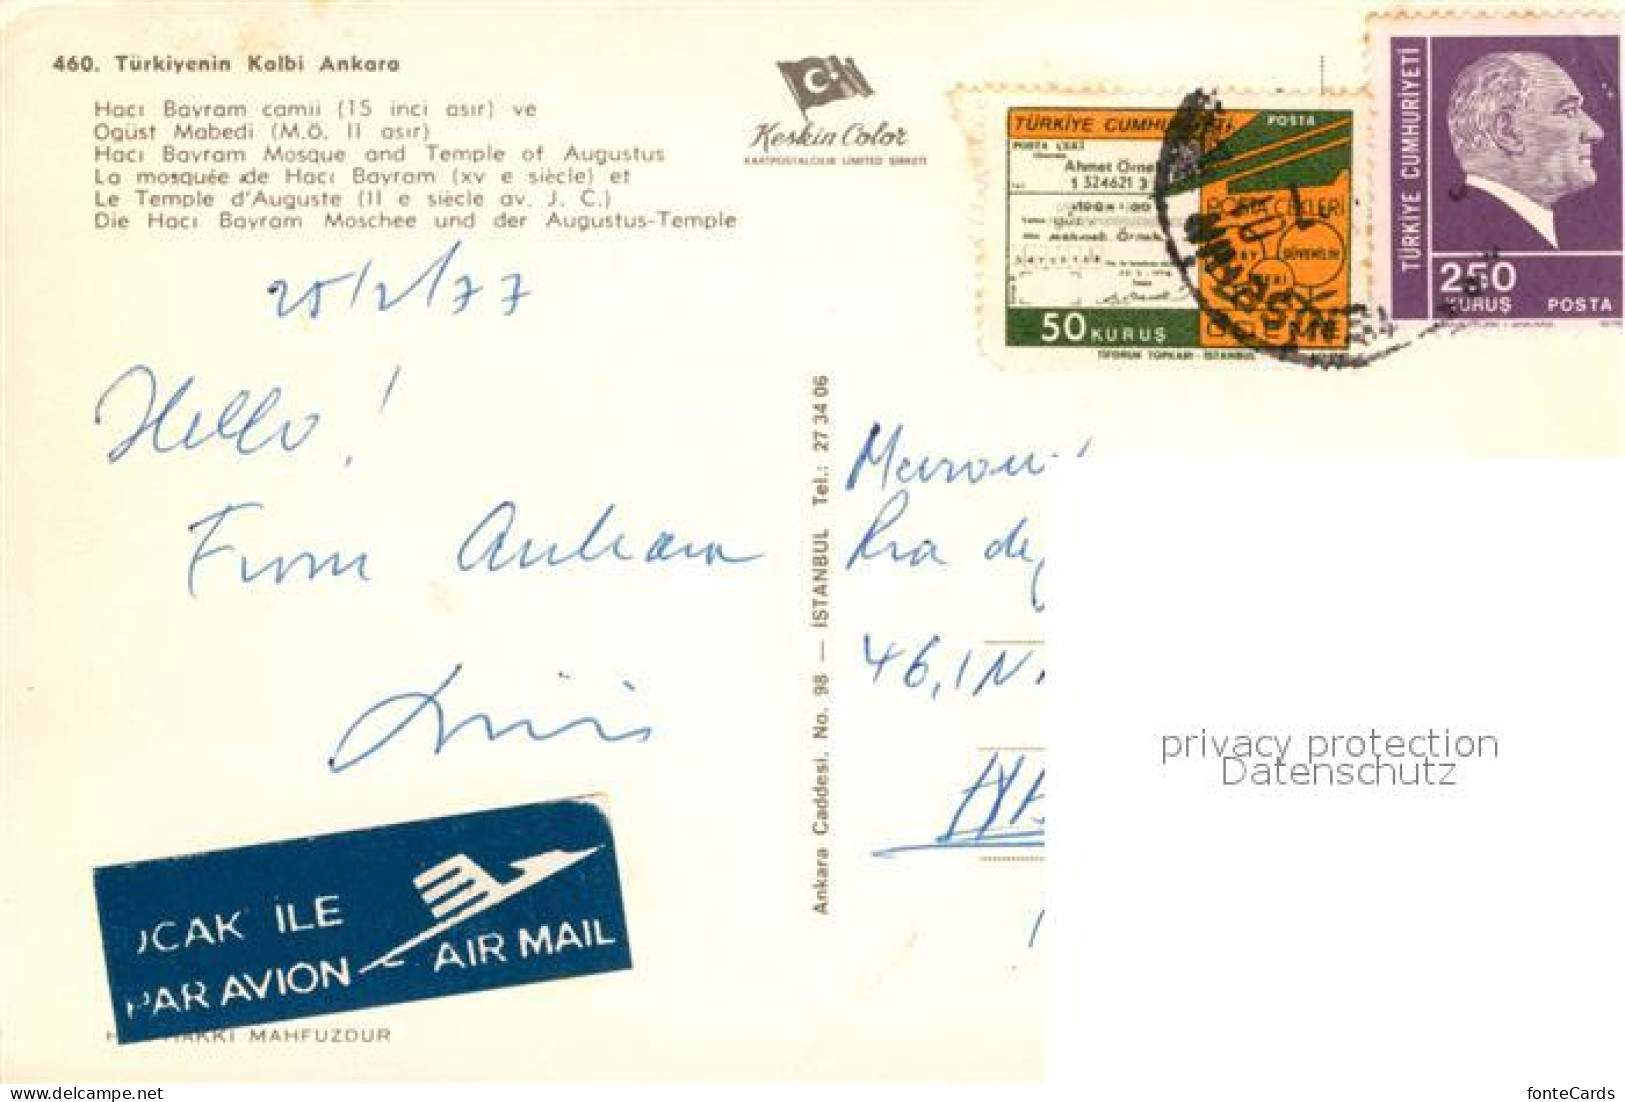 460. Türkiyenin Kalbi Ankara
Hacı Bayram camii (15 inci asır) ve
Ogüst Mabedi (M.Ö. II asır)
Hacı Bayram Mosque and Temple of Augustus
La mosquée de Hacı Bayram (xv e siècle) et
Le Temple d'Auguste (II e siècle av. J. C.)
Die Hacı Bayram Moschee und der Augustus-Temple
Keskin Color
KARTPOSTALCILIK LIMITED ŞIRKETI
TÜRKİYE CUMHURİYETİ POSTA
POSTA ÇEKİ
Ahmet Örnek
1 324621 3
POSTA ÇEKLERİ
GÜVENİLİR
50 KURUŞ
ÖDEME
TİFDRUK TOPKAPI - İSTANBUL
TÜRKİYE CUMHURİYETİ
250
KURUŞ POSTA
25/2/77
Hello!
From Ankara
Ankara Caddesi, No. 98 — İSTANBUL Tel.: 27 34 06
46,1
UCAK İLE
PAR AVION AIR MAIL
HAKKI MAHFUZDUR
privacy protection
Datenschutz
www.delcampe.net
fonteCards